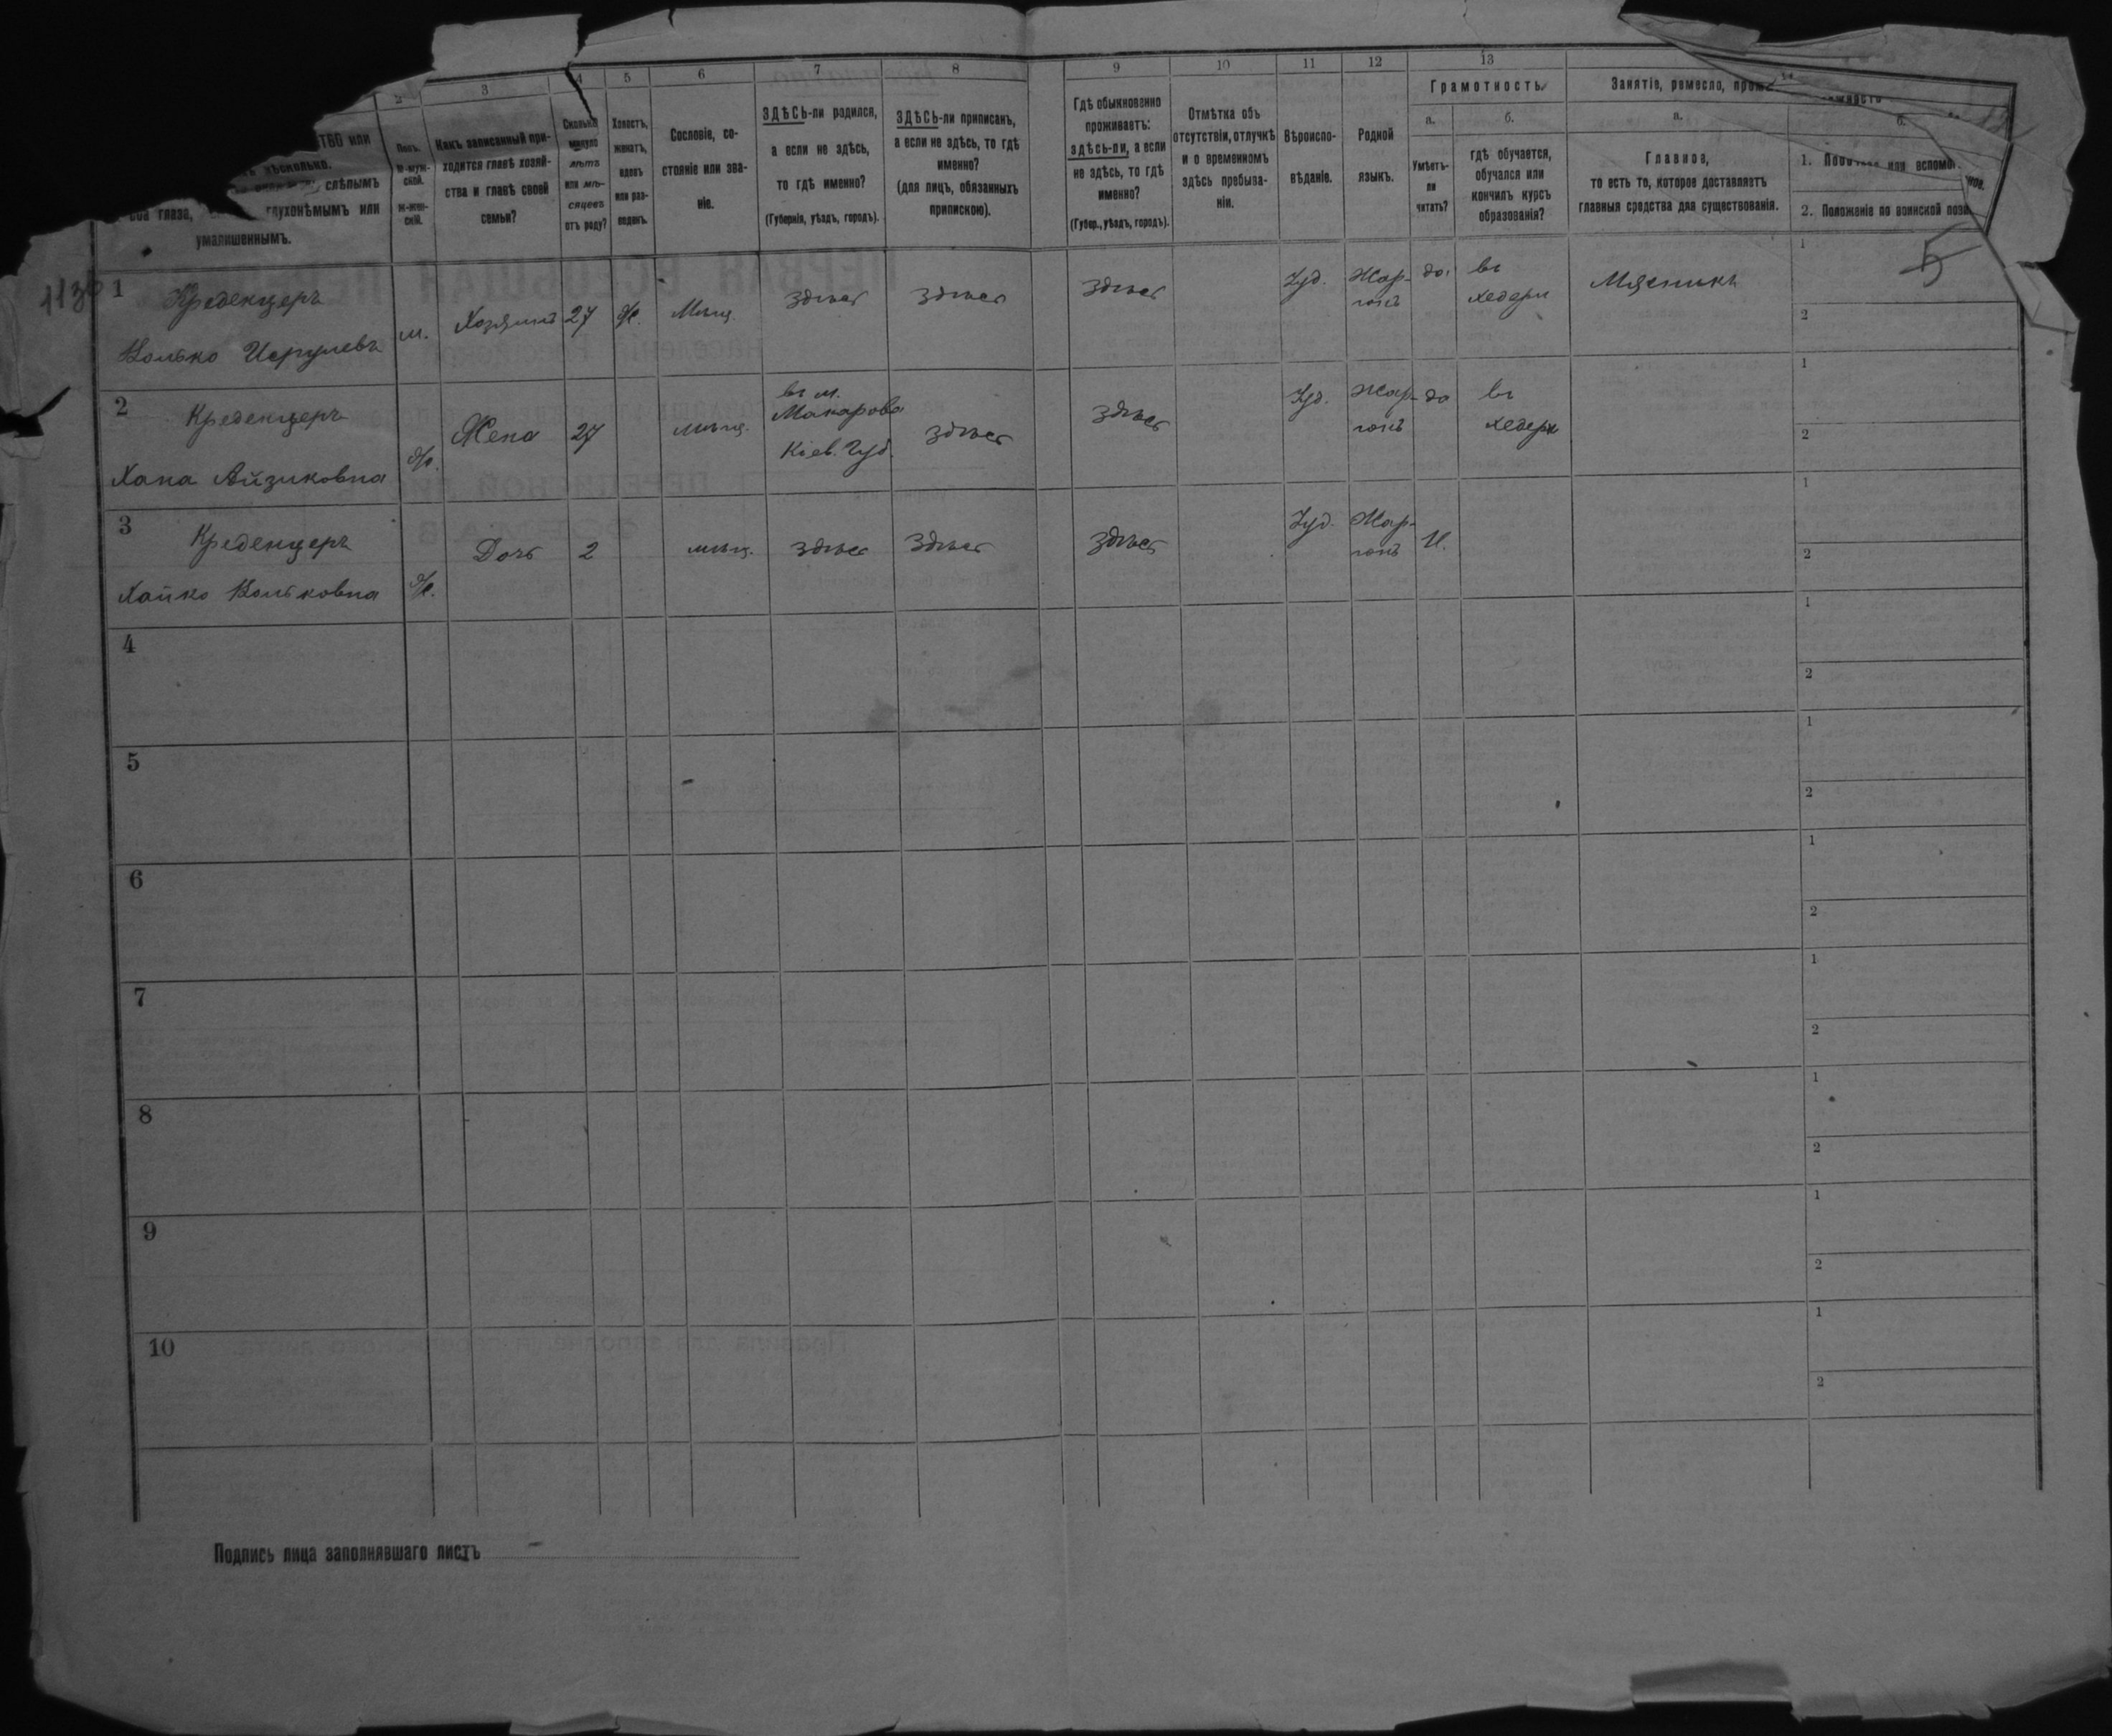 2 3 4 5 6 7 8 9 10 11 12 13
ТВО или
нѣсколько.
слѣпымъ
глаза, глухонѣмымъ или
умалишеннымъ.
Полъ.
М-муж-
ской.
Ж-жен-
скій.
Какъ записанный при-
ходится главѣ хозяй-
ства и главѣ своей
семьи?
Сколько
минуло
лѣтъ
или мѣ-
сяцевъ
отъ роду?
Холостъ,
женатъ,
вдовъ
или раз-
веденъ.
Сословіе, со-
стояніе или зва-
ніе.
ЗДѢСЬ-ли родился,
а если не здѣсь,
то гдѣ именно?
(Губернія, уѣздъ, городъ).
ЗДѢСЬ-ли приписанъ,
а если не здѣсь, то гдѣ
именно?
(для лицъ, обязанныхъ
припискою).
Гдѣ обыкновенно
проживаетъ:
здѣсь-ли, а если
не здѣсь, то гдѣ
именно?
(Губер., уѣздъ, городъ).
Отмѣтка объ
отсутствіи, отлучкѣ
и о временномъ
здѣсь пребыва-
ніи.
Вѣроиспо-
вѣданіе.
Родной
языкъ.
Грамотность.
а.
Умѣетъ-
ли
читать?
б.
гдѣ обучается,
обучался или
кончилъ курсъ
образованія?
Занятіе, ремесло,
а.
Главное,
то есть то, которое доставляетъ
главныя средства для существованія.
б.
1. или
2. Положеніе по воинской
5
1
Креденцеръ
Волько Исрулевъ
м.
Хозяинъ
27
Ж.
Мѣщ.
здѣсь
здѣсь
здѣсь
Іуд.
Жар-
гонъ
да
въ
хедери
Мясникъ
1
2
2
Креденцеръ
Хана Айзиковна
Ж.
Жена
27
мѣщ.
въ м.
Макарова
Кіев. Губ.
здѣсь
здѣсь
Іуд.
Жар-
гонъ
да
въ
хедери
1
2
3
Креденцеръ
Хайка Вольковна
Ж.
Дочь
2
мѣщ.
здѣсь
здѣсь
здѣсь
Іуд.
Жар-
гонъ
Н.
1
2
4
1
2
5
1
2
6
1
2
7
1
2
8
1
2
9
1
2
10
1
2
Подпись лица заполнявшаго листъ